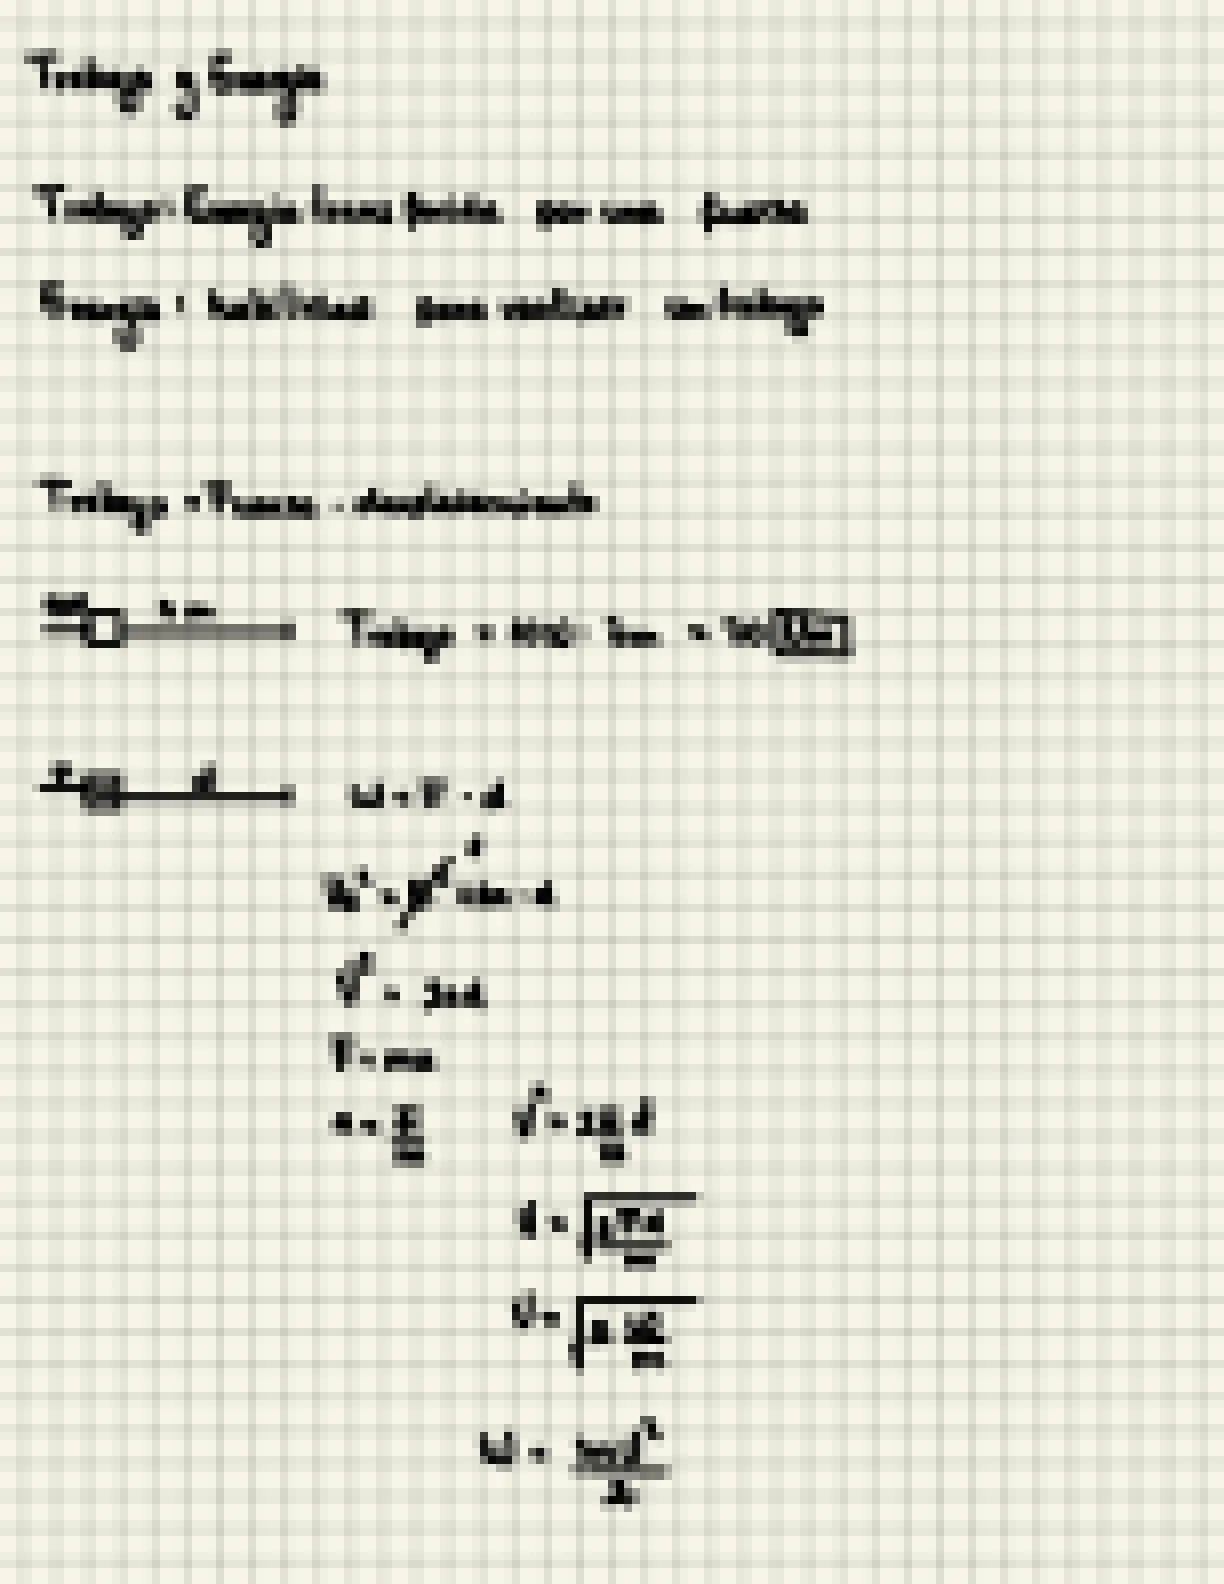 Trabajo y Energía
Trabajo: Energía transferida por una fuerza
Energía: habilidad para realizar un trabajo
Trabajo = Fuerza · desplazamiento
Trabajo =
F d W = F · d
V² = 2ad
F = ma
a = F/m V² = 2 F/m d
V = √(2Fd/m)
V = √(2 W/m)
W = mv²/2